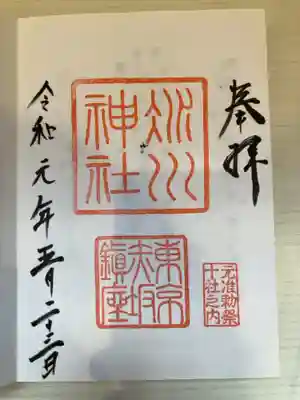 奉拝
氷川
神社
東京
赤坂
鎮座
元准勅祭
十社之内
令和元年五月二十三日